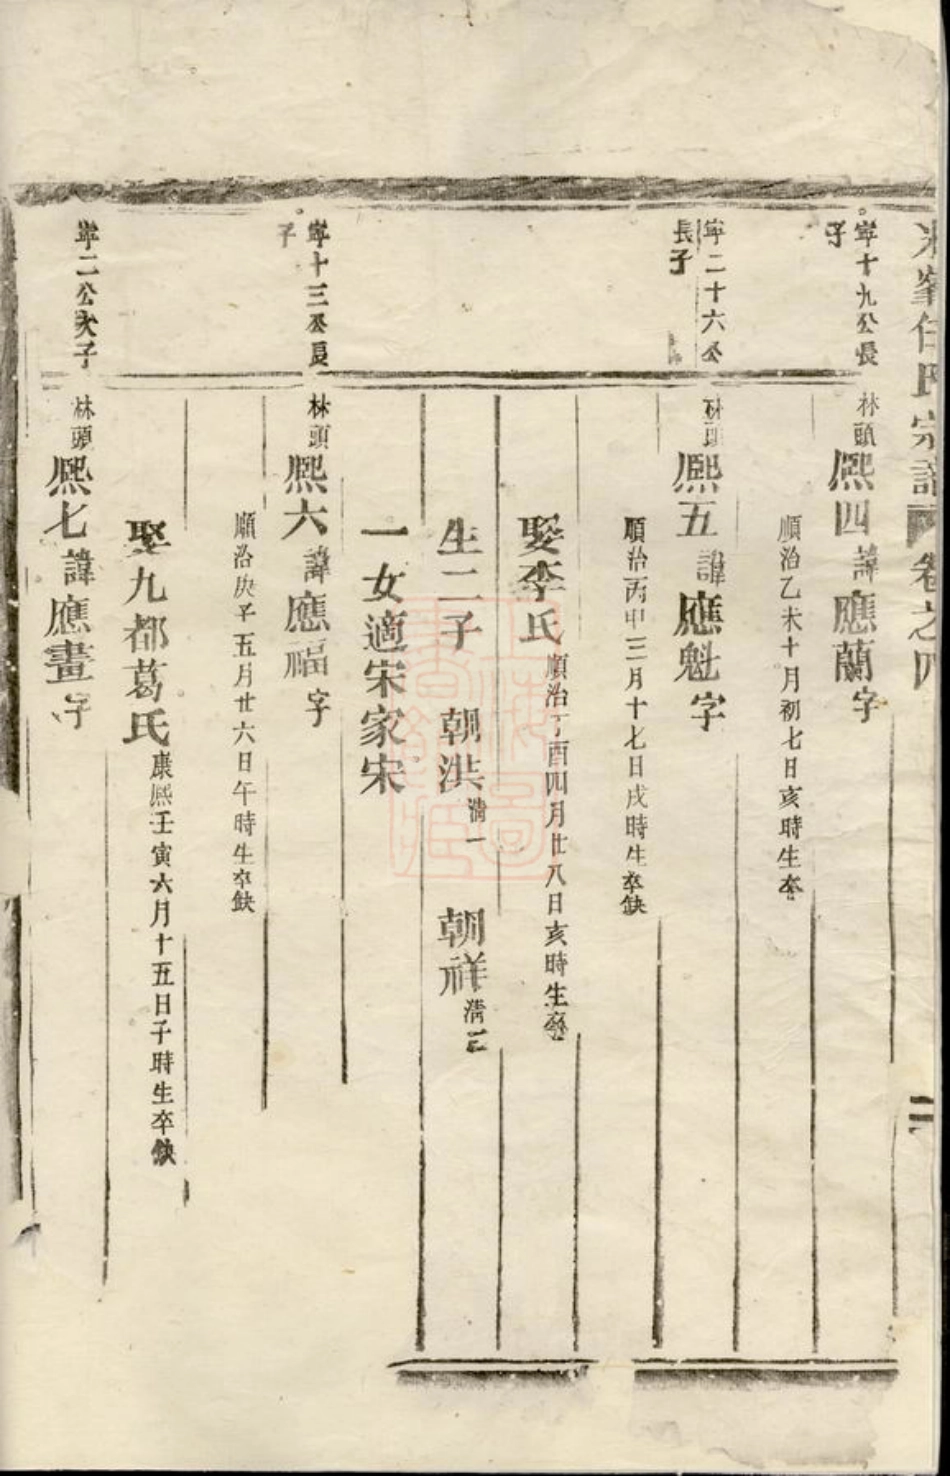 峯任氏宗譜 卷之四
二
寧十九公長子
林頭熙四諱應蘭字
順治乙未十月初七日亥時生卒
寧二十六公長子
林頭熙五諱應魁字
順治丙申三月十七日戌時生卒缺
娶李氏順治丁酉四月廿八日亥時生卒
生二子 朝洪清一 朝祥清三
一女適宋家宋
寧十三公長子
林頭熙六諱應福字
順治庚子五月廿六日午時生卒缺
娶九都葛氏康熙壬寅六月十五日子時生卒缺
寧二公次子
林頭熙七諱應畫字